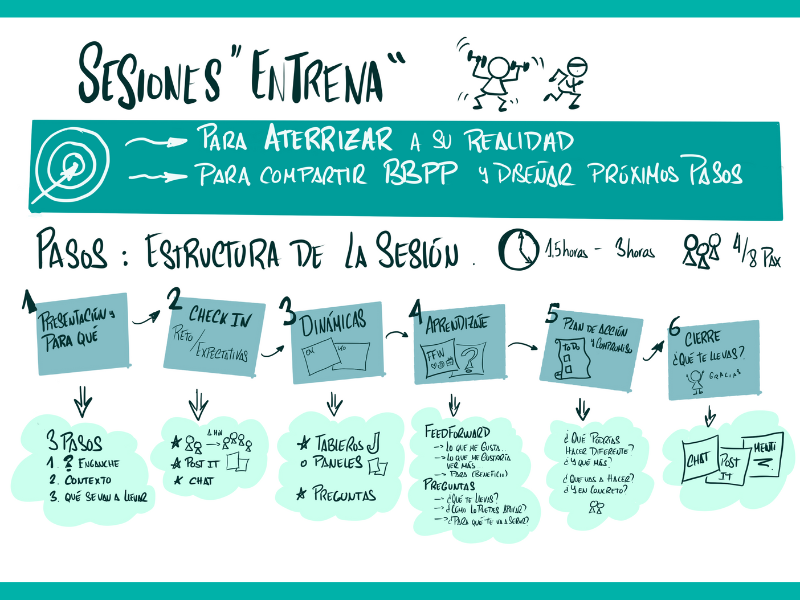 SESIONES "ENTRENA"
PARA ATERRIZAR A SU REALIDAD
PARA COMPARTIR BBPP Y DISEÑAR PRÓXIMOS PASOS
PASOS: ESTRUCTURA DE LA SESIÓN.
1,5 horas - 3 horas
4/8 PAX
1
PRESENTACIÓN Y
PARA QUÉ
2
CHECK IN
RETO/
EXPECTATIVAS
3
DINÁMICAS
4
APRENDIZAJE
FFW
?
5
PLAN DE ACCIÓN
Y COMPROMISO
TO DO
6
CIERRE
¿QUÉ TE LLEVAS?
GRACIAS
3 PASOS
1. ? ENGANCHE
2. CONTEXTO
3. QUÉ SE VAN A LLEVAR
1 MIN
POST IT
CHAT
TABLEROS J
O PANELES
PREGUNTAS
FEEDFORWARD
LO QUE ME GUSTA.
LO QUE ME GUSTARÍA
VER MÁS
PARA (BENEFICIO)
PREGUNTAS
¿QUÉ TE LLEVAS?
¿CÓMO LO PUEDES APLICAR?
¿PARA QUÉ TE VA A SERVIR?
¿QUÉ PODRÍAS
HACER DIFERENTE?
¿Y QUÉ MÁS?
¿QUÉ VAS A HACER?
¿Y EN CONCRETO?
CHAT
POST
IT
MENTI